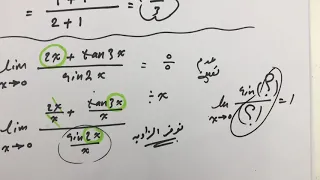 1 + 1 / 2 + 1 =
lim x→0 (2x + tan3x) / (sin2x) = 0/0 عدم تعيين
÷x
lim x→0 (2x/x + tan3x/x) / (sin2x/x) نوفر الزاوية
lim x→0 sin(؟) / (؟) = 1